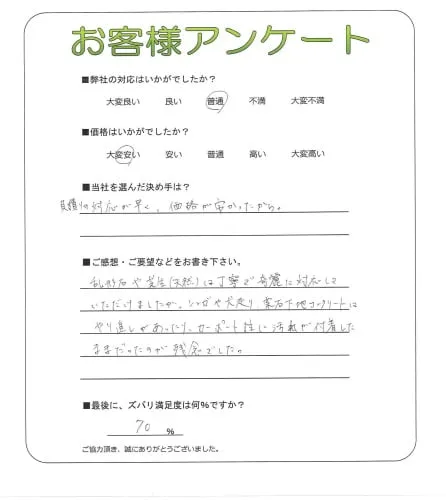 お客様アンケート
■弊社の対応はいかがでしたか?
大変良い 良い 普通 不満 大変不満
■価格はいかがでしたか?
大変安い 安い 普通 高い 大変高い
■当社を選んだ決め手は?
見積りの対応が早く、価格が安かったから。
■ご感想・ご要望などをお書き下さい。
乱形石や芝生(天然)は丁寧で綺麗に対応して
いただけましたが、レンガや犬走り、乱石下地コンクリートに
やり直しがあったり、カーポート柱に汚れが付着した
ままだったのが残念でした。
■最後に、ズバリ満足度は何%ですか?
70 %
ご協力頂き、誠にありがとうございました。